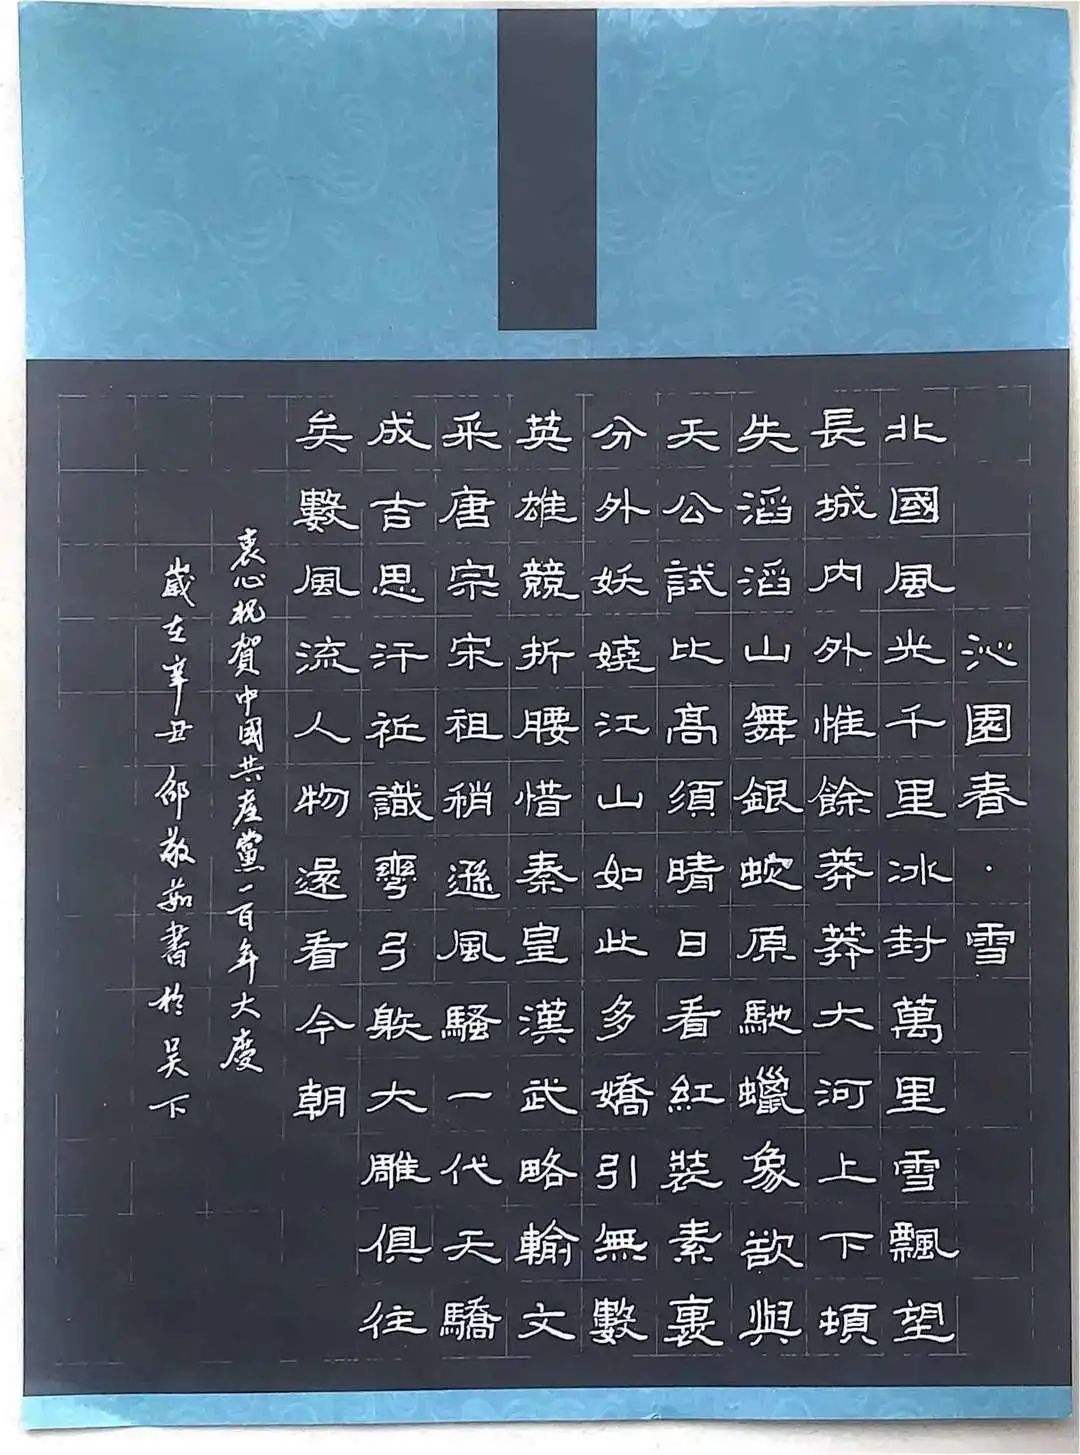 沁園春·雪
北國風光千里冰封萬里雪飄望
長城内外惟餘莽莽大河上下頓
失滔滔山舞銀蛇原馳蠟象欲與
天公試比髙須晴日看紅裝素裹
分外妖嬈江山如此多嬌引無數
英雄競折腰惜秦皇漢武略輸文
采唐宗宋祖稍遜風騷一代天驕
成吉思汗祇識彎弓䠶大雕俱往
矣數風流人物還看今朝
衷心祝賀中國共產黨一百年大慶
歲在辛丑邵敬茹書於吴下